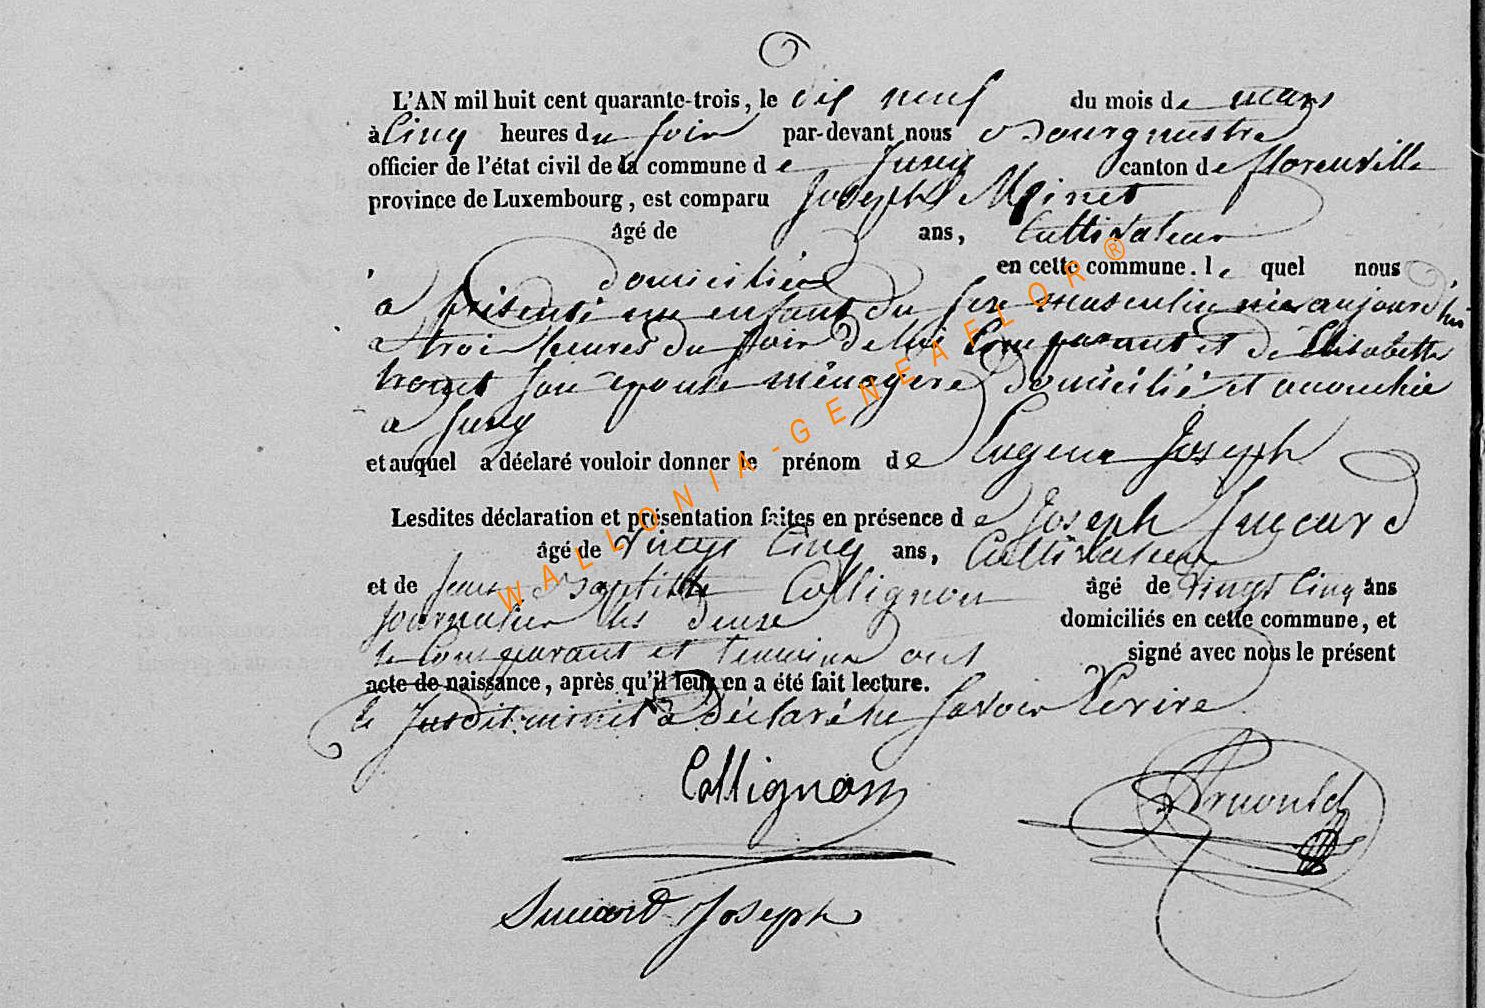 L'AN mil huit cent quarante-trois, le dix neuf du mois de mars
à Cinq heures du soir par-devant nous Bourgmestre
officier de l'état civil de la commune de canton de florenville
province de Luxembourg, est comparu Joseph Minet
âgé de ans, Cultivateur
domicilié en cette commune. le quel nous
a présenté un enfant du sexe masculin né aujourd'hui
a trois heures du soir de lui Comparant et de Elisabeth
son épouse ménagere domicilié et accouchée
a
et auquel a déclaré vouloir donner le prénom de Eugene Joseph
Lesdites déclaration et présentation faites en présence de Joseph
âgé de vingt Cinq ans, Cultivateur
et de Jean Baptiste Collignon âgé de vingt Cinq ans
Journalier les deux domiciliés en cette commune, et
le Comparant et temoins ont signé avec nous le présent
acte de naissance, après qu'il leur en a été fait lecture.
le susdit minet a déclaré ne savoir Ecrire
Collignon
Arnould
Joseph
WALLONIA-GENEAFLOR®